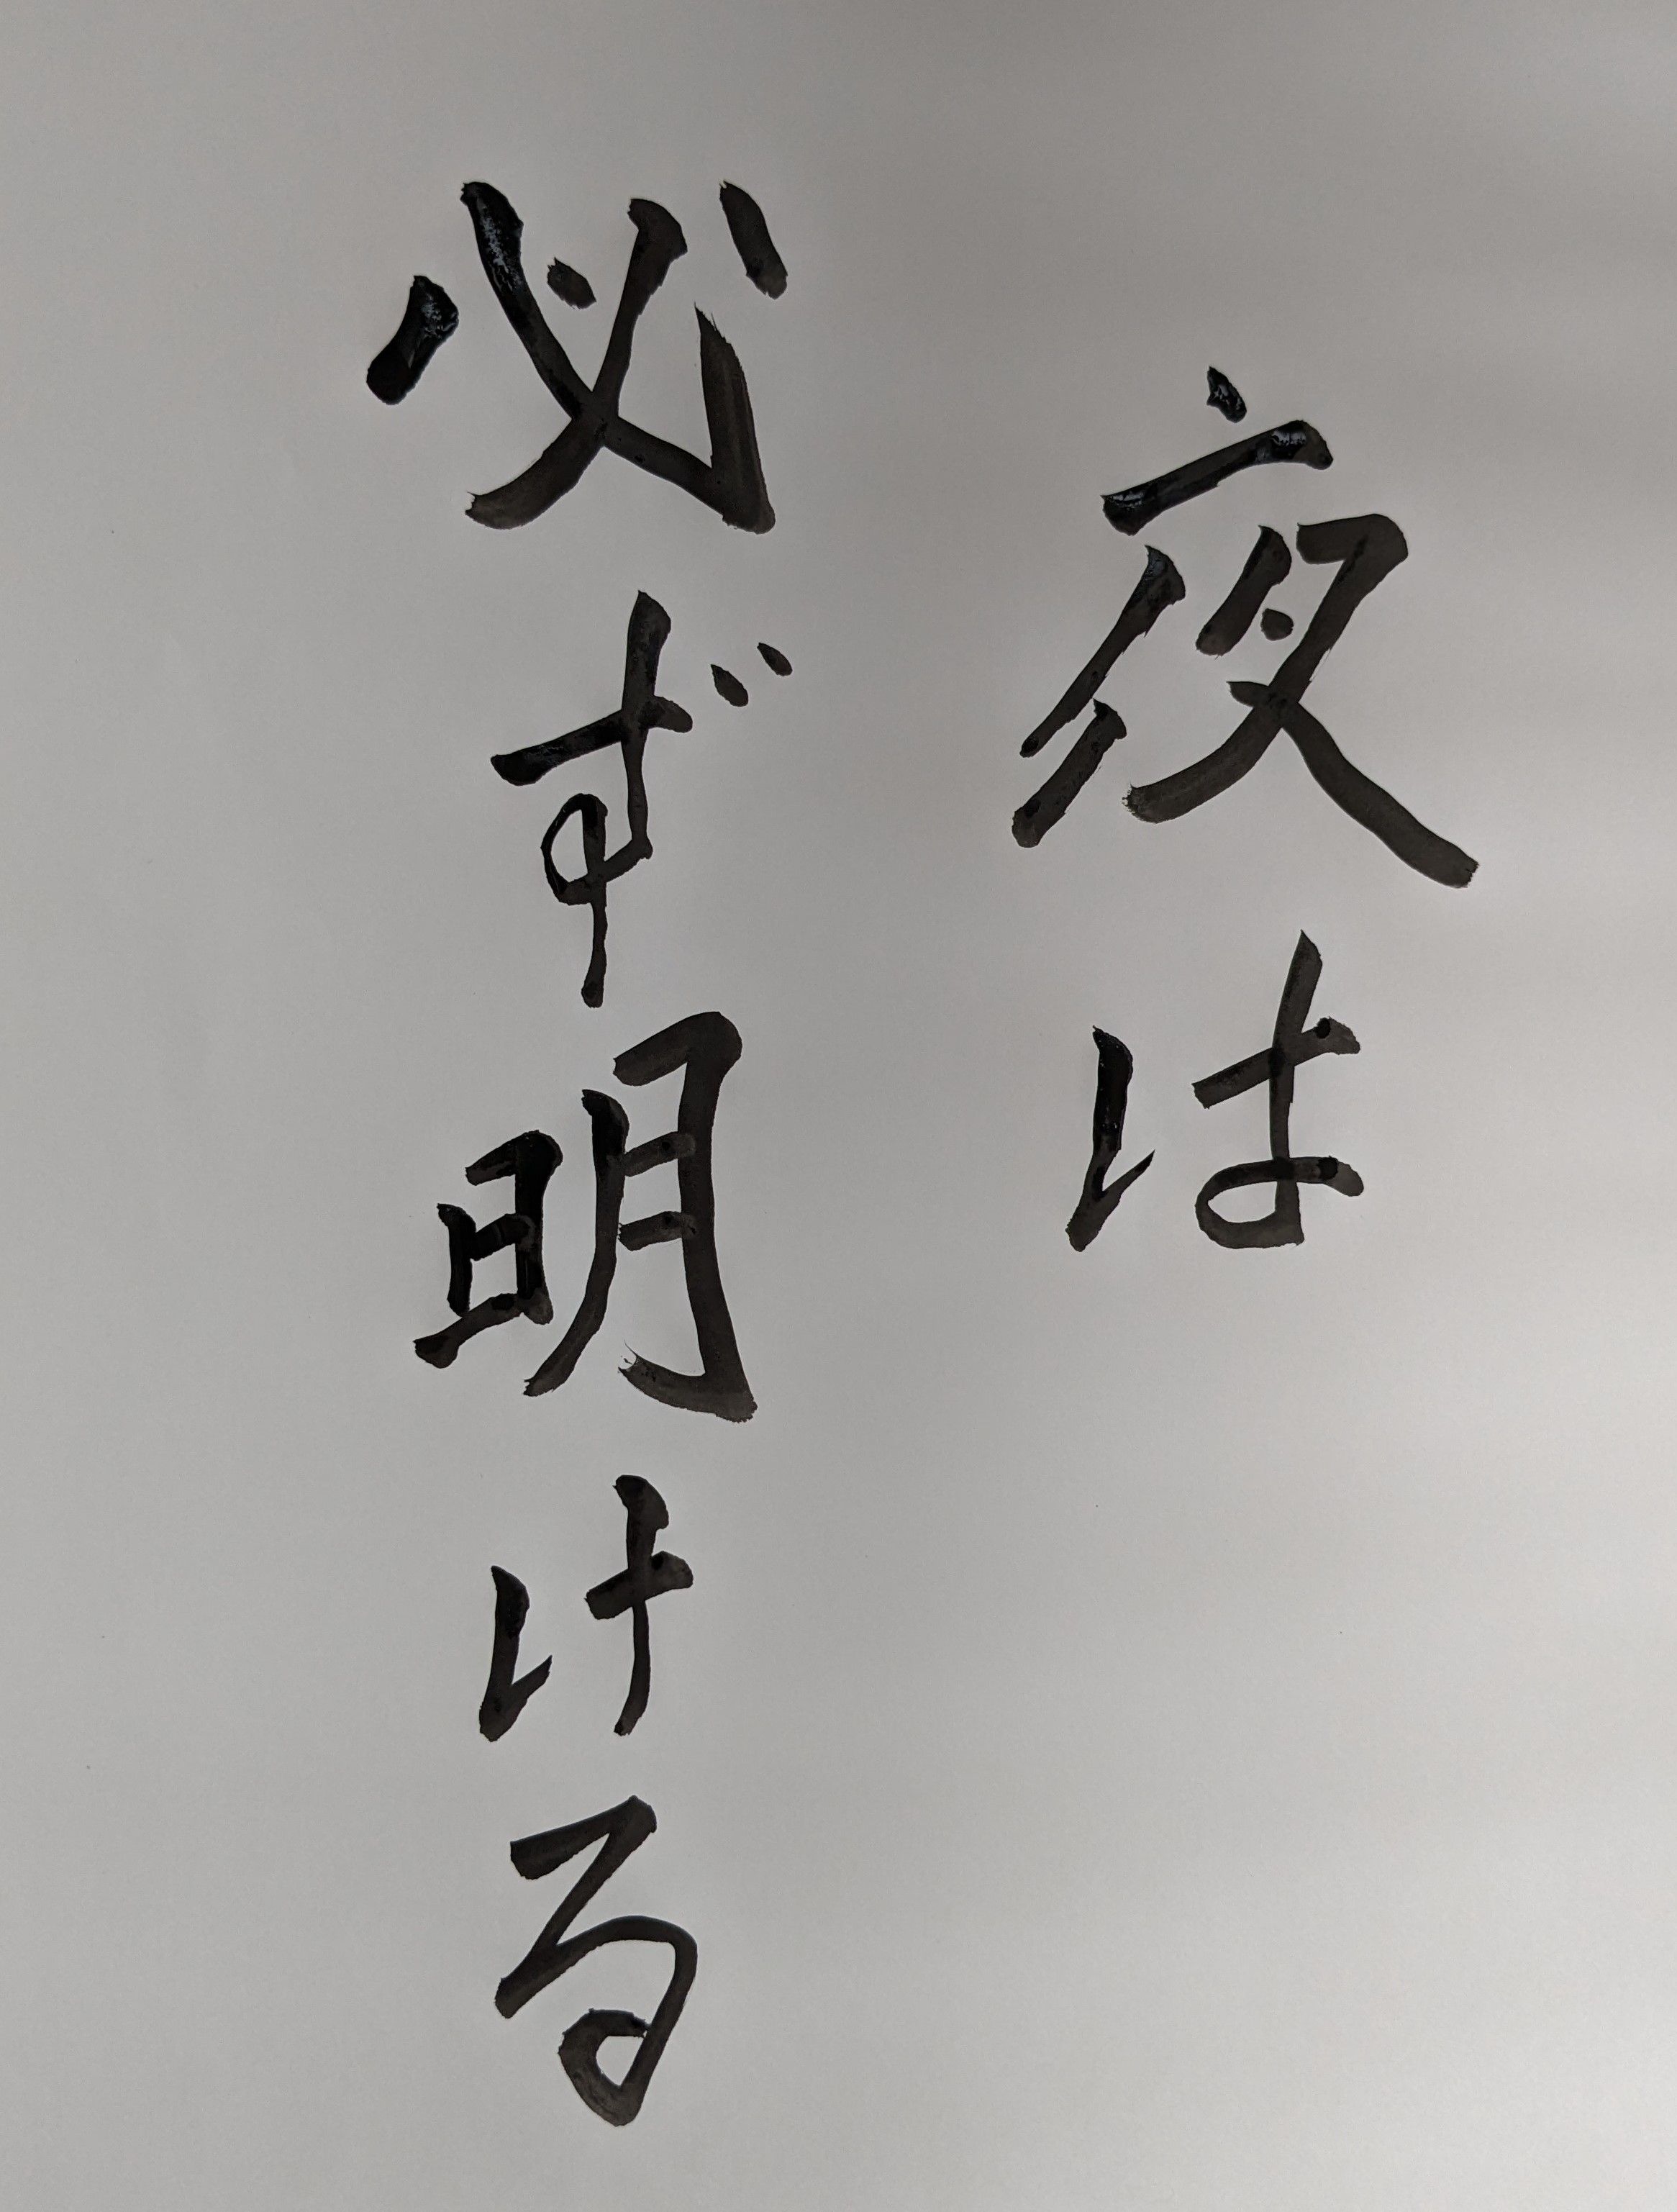 夜は
必ず明ける